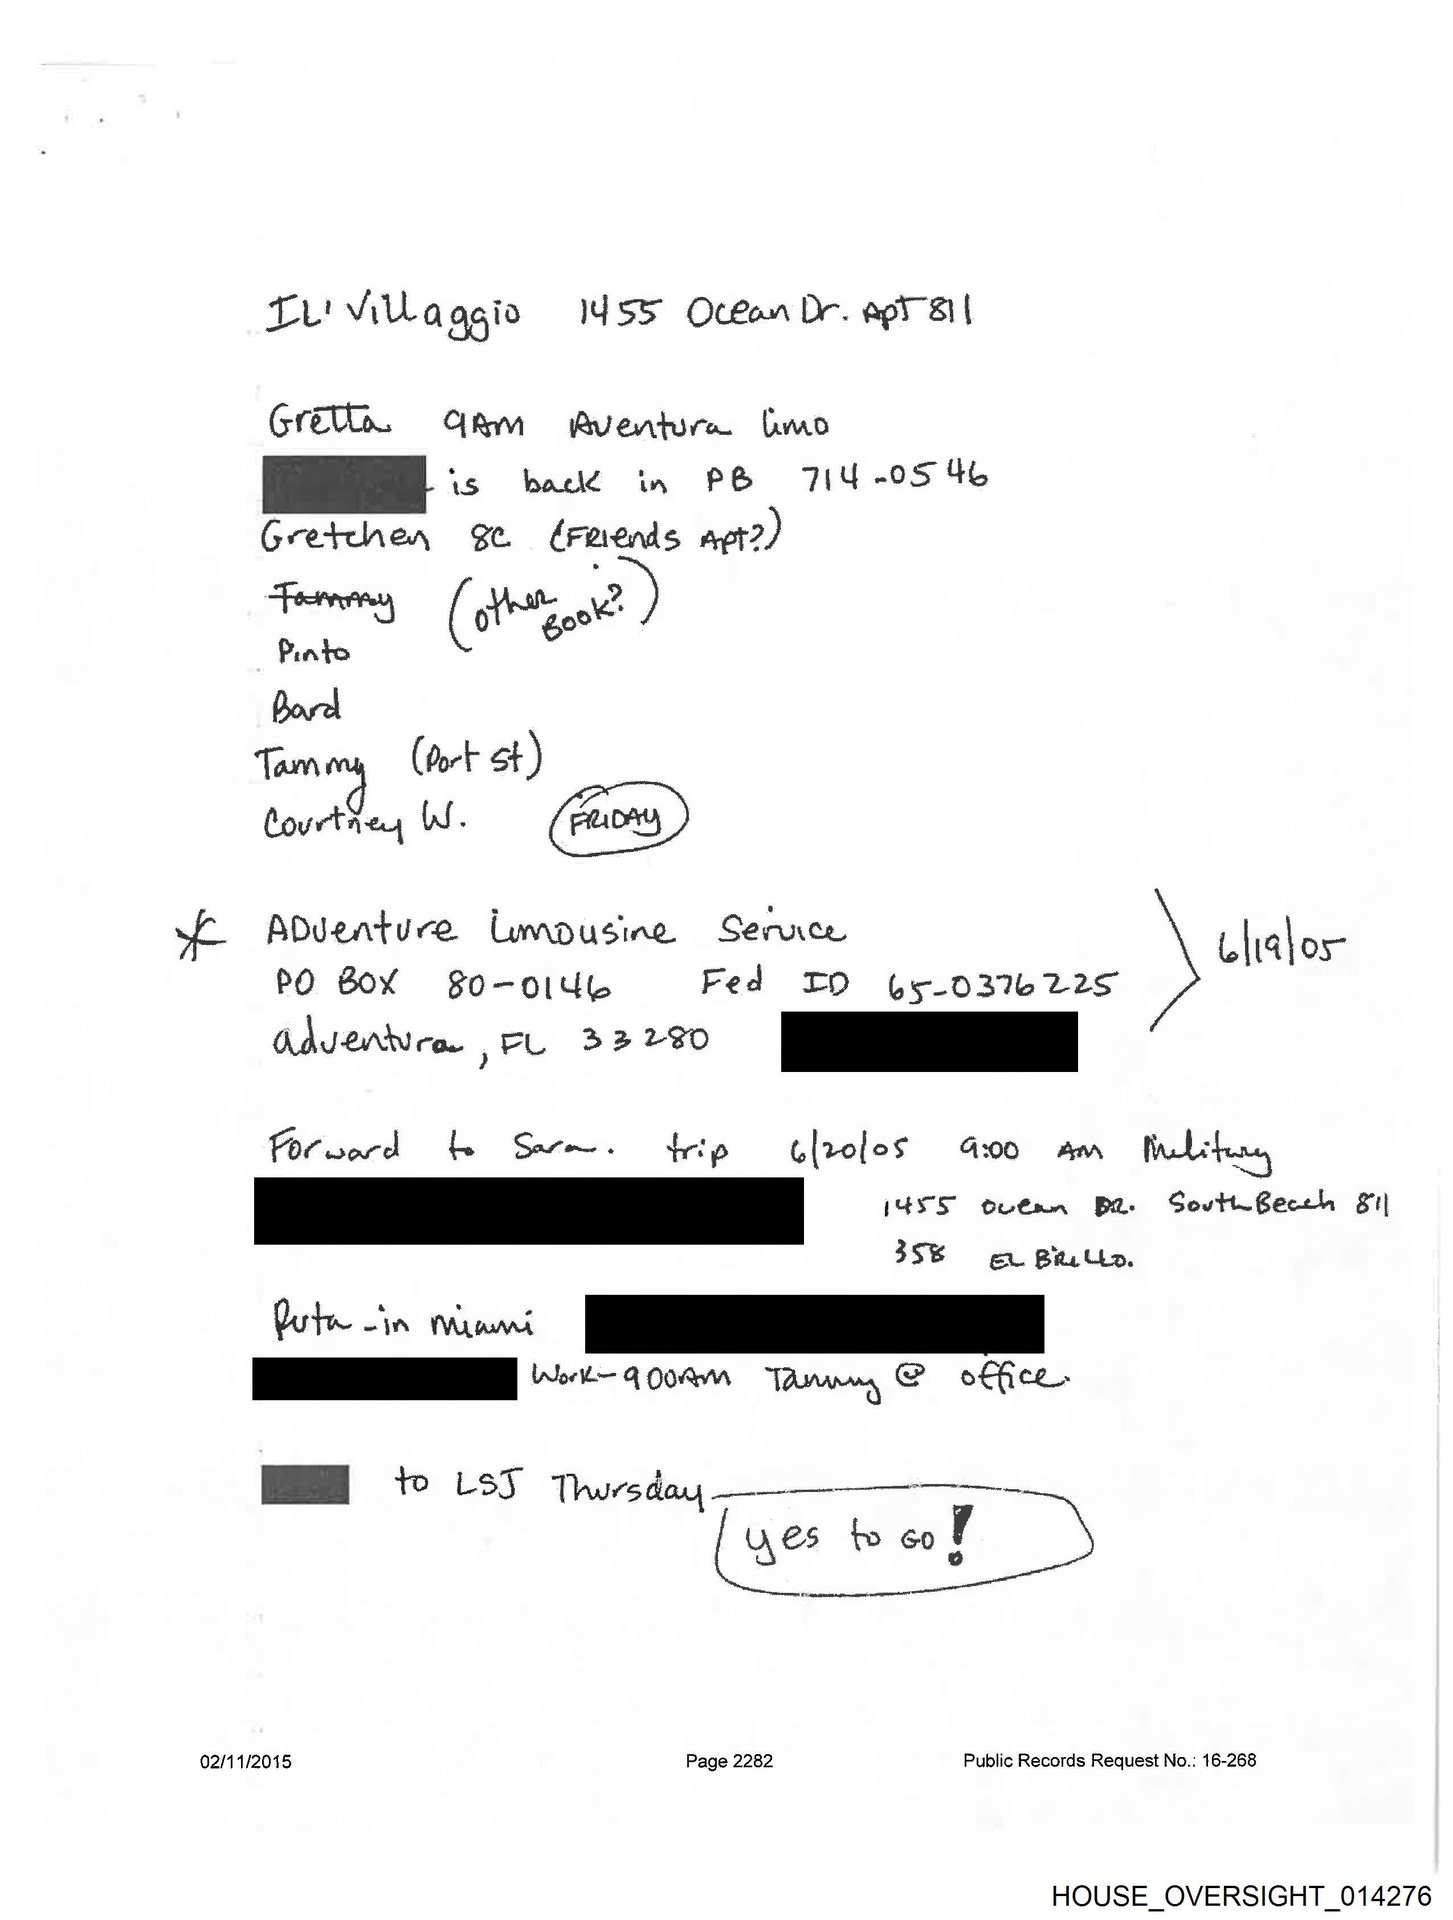 IL' Villaggio 1455 Ocean Dr. Apt 811
Gretta 9AM Aventura limo
is back in PB 714-0546
Gretchen 8C (Friends Apt?)
Tammy (other BOOK?)
Pinto
Bard
Tammy (Port St)
Courtney W. FRIDAY
* ADventure Limousine Service
PO BOX 80-0146 Fed ID 65-0376225 6/19/05
adventura, FL 33280
Forward to Sara. trip 6/20/05 9:00 AM Military
1455 Ocean DR. South Beach 811
358 EL BRILLO.
Ruta - in Miami
Work - 900AM Tammy @ office.
to LSJ Thursday
yes to GO!
02/11/2015 Page 2282 Public Records Request No.: 16-268
HOUSE_OVERSIGHT_014276